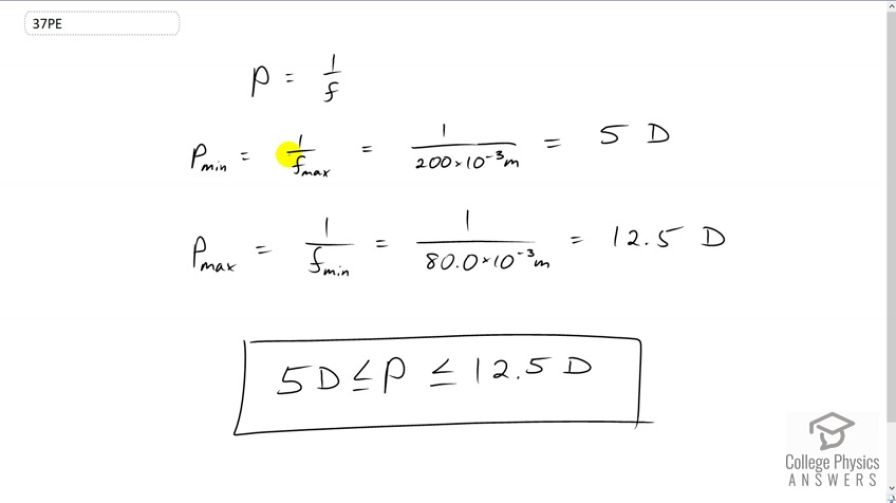 37PE
P = 1/f
P_min = 1/f_max = 1/(200 × 10⁻³ m) = 5 D
P_max = 1/f_min = 1/(80.0 × 10⁻³ m) = 12.5 D
5 D ≤ P ≤ 12.5 D
College Physics
ANSWERS